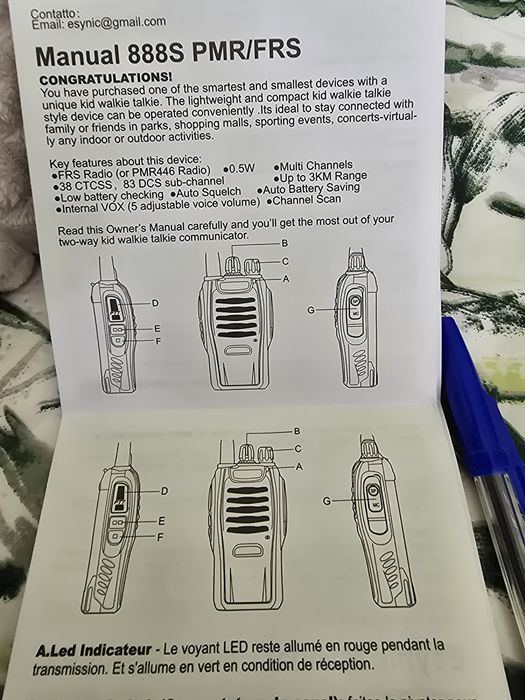 Contatto:
Email: esynic@gmail.com
Manual 888S PMR/FRS
CONGRATULATIONS!
You have purchased one of the smartest and smallest devices with a
unique kid walkie talkie. The lightweight and compact kid walkie talkie
style device can be operated conveniently .Its ideal to stay connected with
family or friends in parks, shopping malls, sporting events, concerts-virtual-
ly any indoor or outdoor activities.
Key features about this device:
●FRS Radio (or PMR446 Radio) ●0.5W ●Multi Channels
●38 CTCSS, 83 DCS sub-channel ●Up to 3KM Range
●Low battery checking ●Auto Squelch ●Auto Battery Saving
●Internal VOX (5 adjustable voice volume) ●Channel Scan
Read this Owner's Manual carefully and you'll get the most out of your
two-way kid walkie talkie communicator.
B
C
A
D
E
F
G
B
C
A
D
E
F
G
A.Led Indicateur - Le voyant LED reste allumé en rouge pendant la
transmission. Et s'allume en vert en condition de réception.